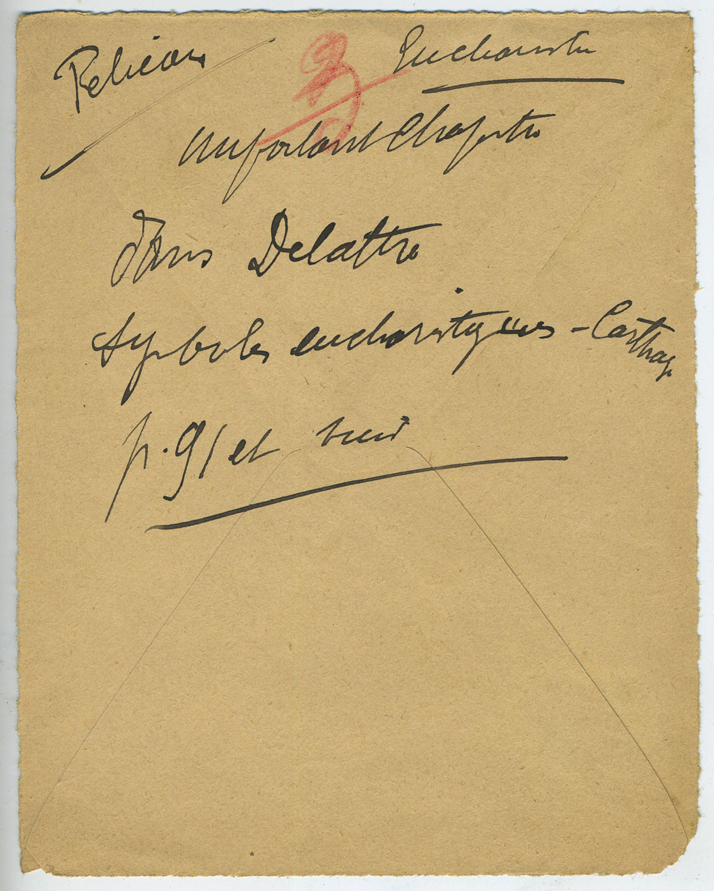 Pelican Eucharistie
important Chapitre
dans Delattre
Symboles eucharistiques - Carthage
p. 91 et suiv